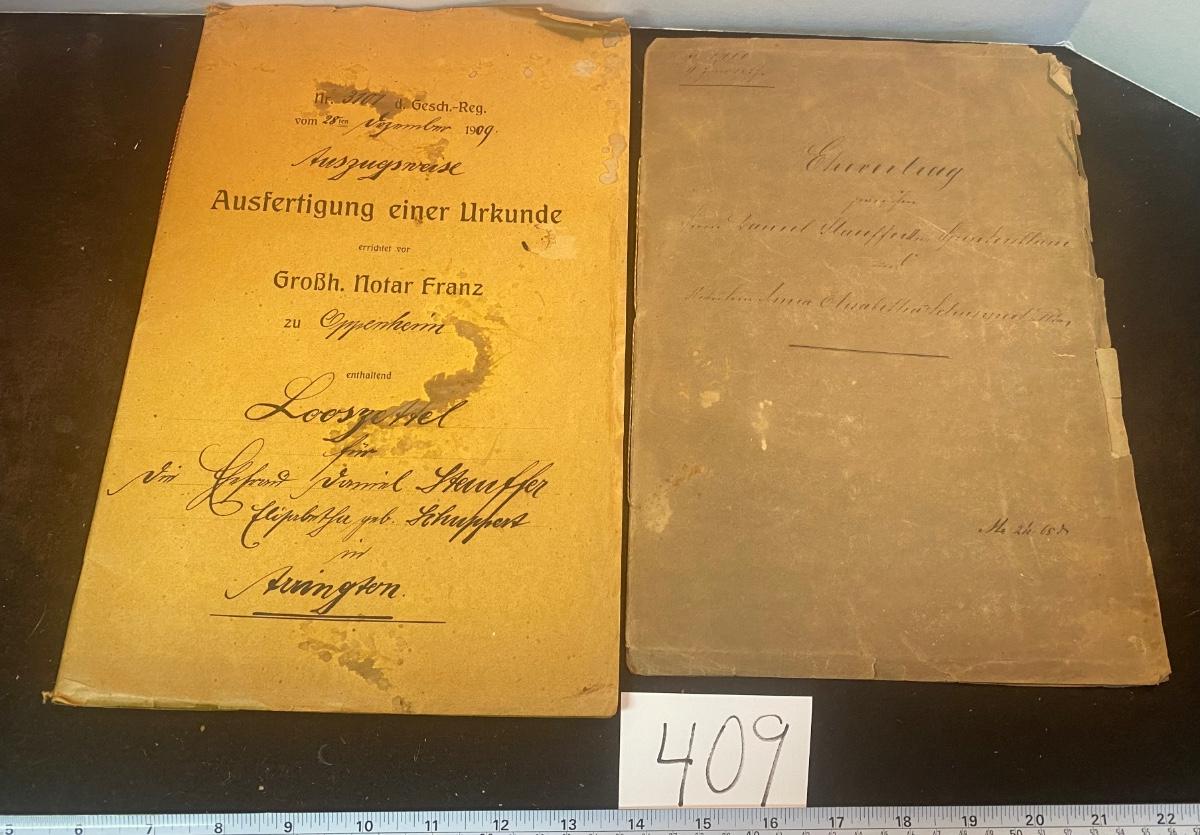 Nr. 3101 d. Gesch.-Reg.
vom 28ten Dezember 1909.
Auszugsweise
Ausfertigung einer Urkunde
errichtet vor
Großh. Notar Franz
zu Oppenheim
enthaltend
Looszettel
für
die Ehefrau Daniel Stauffer
Elisabetha geb. Schuppert
in
Arrington.
Ehevertrag
zwischen
Daniel Stauffer
und
Anna Elisabetha
409
5 6 7 8 9 10 11 12 13 14 15 16 17 18 19 20 21 22